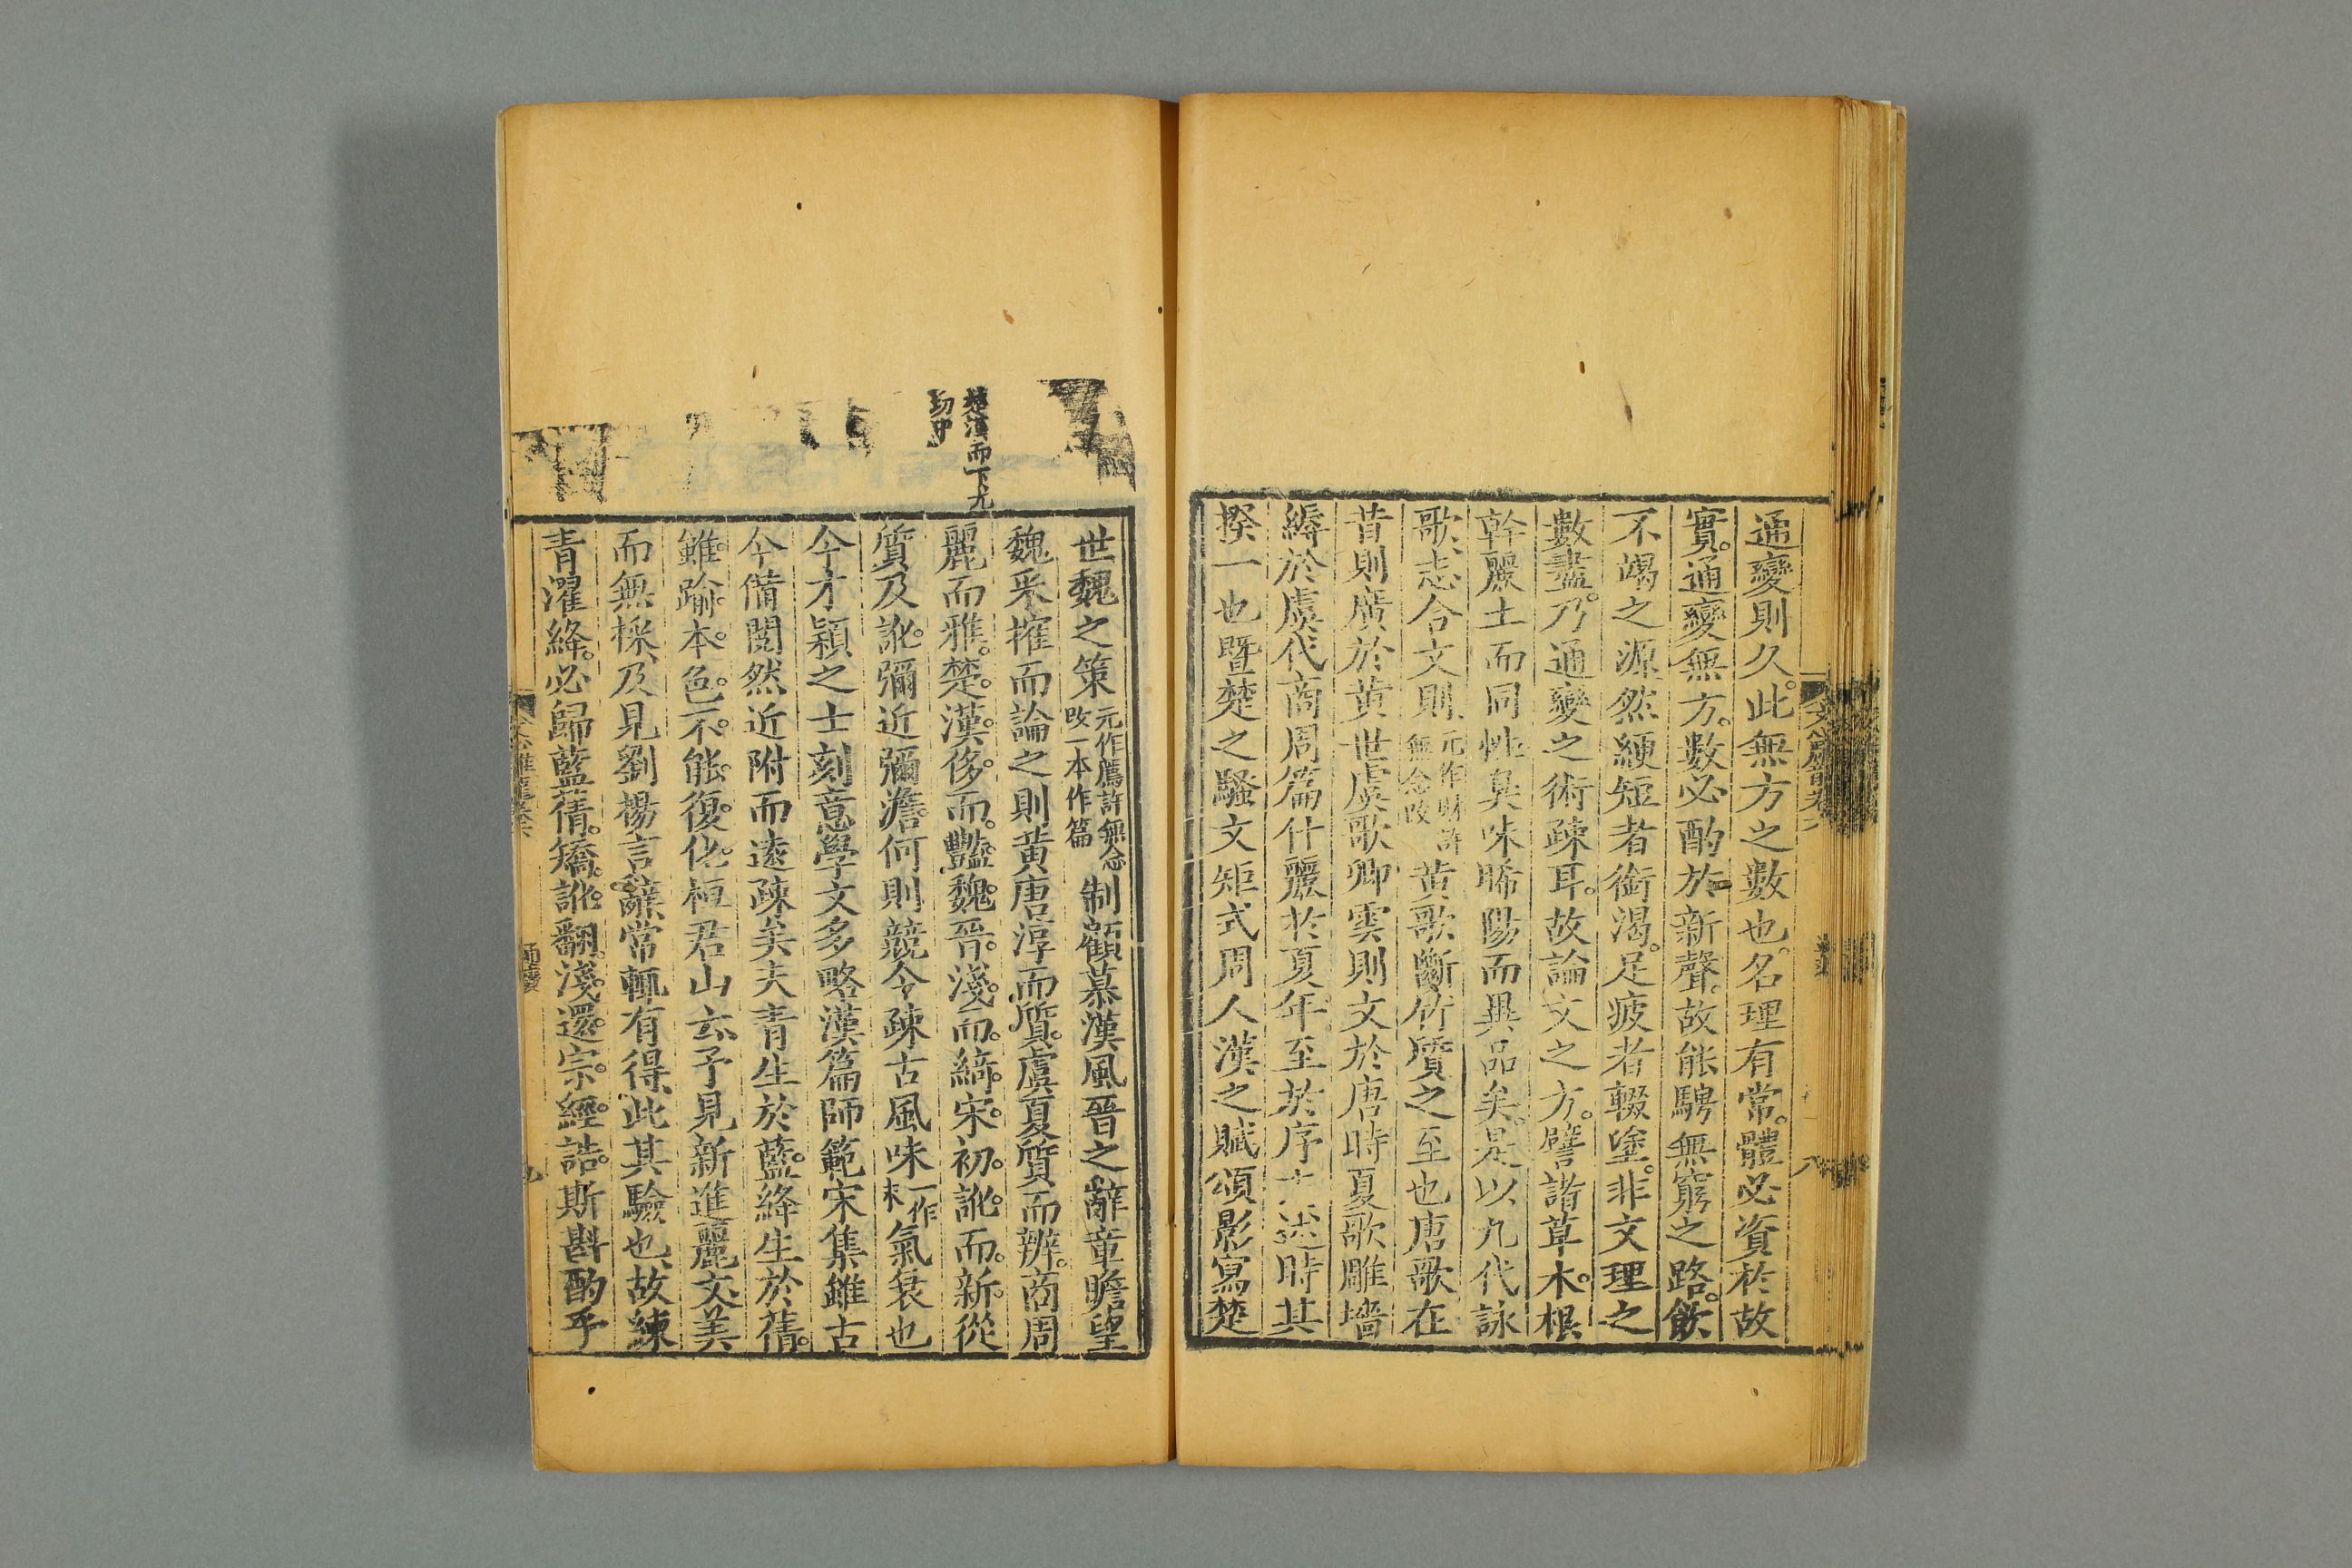 通變則久此無方之數也名理有常體必資於故
實通變無方數必酌於新聲故能騁無窮之路飲
不竭之源然綆短者銜渴足疲者輟塗非文理之
數盡乃通變之術疎耳故論文之方譬諸草木根
幹麗土而同性臭味晞陽而異品矣是以九代詠
歌志合文則元作財許無念改黃歌斷竹質之至也唐歌在
昔則廣於黃世虞歌卿雲則文於唐時夏歌雕墻
縟於虞代商周篇什麗於夏年至於序述時其
揆一也暨楚之騷文矩式周人漢之賦頌影寫楚
楚漢而下尤
切中
世魏之策元作薦許無念改一本作篇制顧慕漢風晉之辭章瞻望
魏采搉而論之則黃唐淳而質虞夏質而辨商周
麗而雅楚漢侈而豔魏晉淺而綺宋初訛而新從
質及訛彌近彌澹何則競今疎古風味一作末氣衰也
今才穎之士刻意學文多略漢篇師範宋集雖古
今備閱然近附而遠疎矣夫青生於藍絳生於蒨
雖踰本色不能復化桓君山云予見新進麗文美
而無採及見劉楊言辭常輒有得此其驗也故練
青濯絳必歸藍蒨矯訛翻淺還宗經誥斯斟酌乎